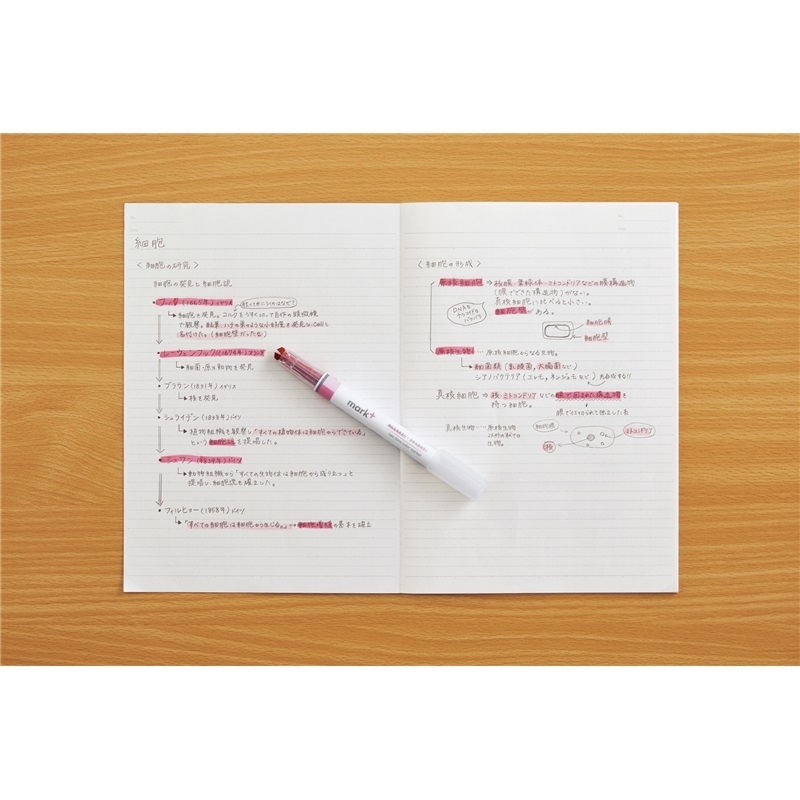 細胞
〈 細胞の研究 〉
細胞の発見と細胞説
・フック(1665年)イギリス
→細胞を発見。コルクをうすく切って自作の顕微鏡
で観察。結果、ハチの巣のような小部屋を発見しcellと
名付けた。(細胞壁だったが)
・レーウェンフック(1674年)オランダ
→細菌・原生動物を発見
・ブラウン(1831年)イギリス
→核を発見
・シュライデン(1838年)ドイツ
→植物組織を観察し「すべての植物体は細胞からできている」
という細胞説を提唱した。
・シュワン(1839年)ドイツ
→動物組織から「すべての生物体は細胞から成り立つ」と
提唱し細胞説を確立した。
・フィルヒョー(1858年)ドイツ
→「すべての細胞は細胞から生じる。」→細胞増殖の基本を確立
mark+
〈 細胞の形成 〉
原核細胞 → 核膜・葉緑体・ミトコンドリアなどの膜構造物
(膜でできた構造物)がない。
真核細胞に比べると小さい。
細胞壁がある。
DNAは
細胞膜
細胞壁
原核生物 … 原核細胞からなる生物。
→細菌類(乳酸菌,大腸菌など)
シアノバクテリア(ユレモ,ネンジュモなど)
光合成する!!
真核細胞 → 核・ミトコンドリアなどの膜で包まれた構造物を
持つ細胞。
真核生物 … 原核生物
以外の全ての
生物。
細胞膜
核
ミトコンドリア